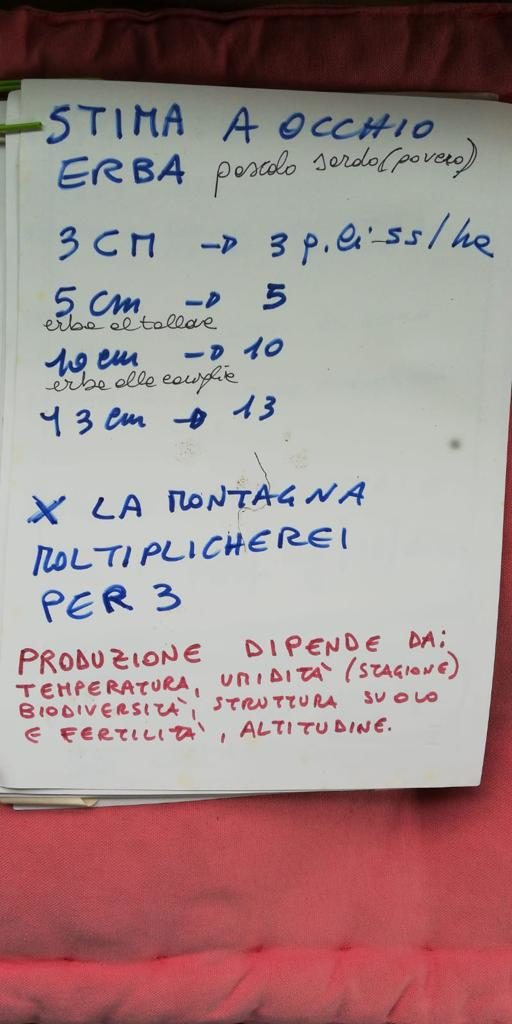 STIMA A OCCHIO
ERBA pascolo sardo (povero)
3 CM → 3 q.li ss/ha
5 cm → 5
erba al tallone
10 cm → 10
erba alle caviglie
13 cm → 13
X LA MONTAGNA
MOLTIPLICHEREI
PER 3
PRODUZIONE DIPENDE DA:
TEMPERATURA, UMIDITÀ (STAGIONE)
BIODIVERSITÀ, STRUTTURA SUOLO
E FERTILITÀ, ALTITUDINE.